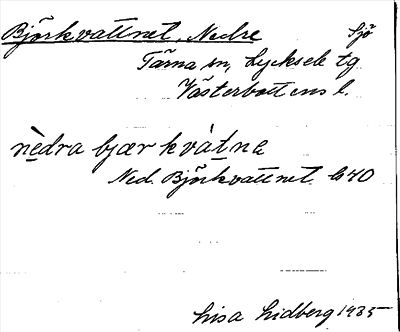 Björkvattnet, Nedre Sjö
Tärna sn, Lycksele tg
Västerbottens l.
nèdra bjær kvátnə
Ned. Björkvattnet b 40
Lisa Lidberg 1935